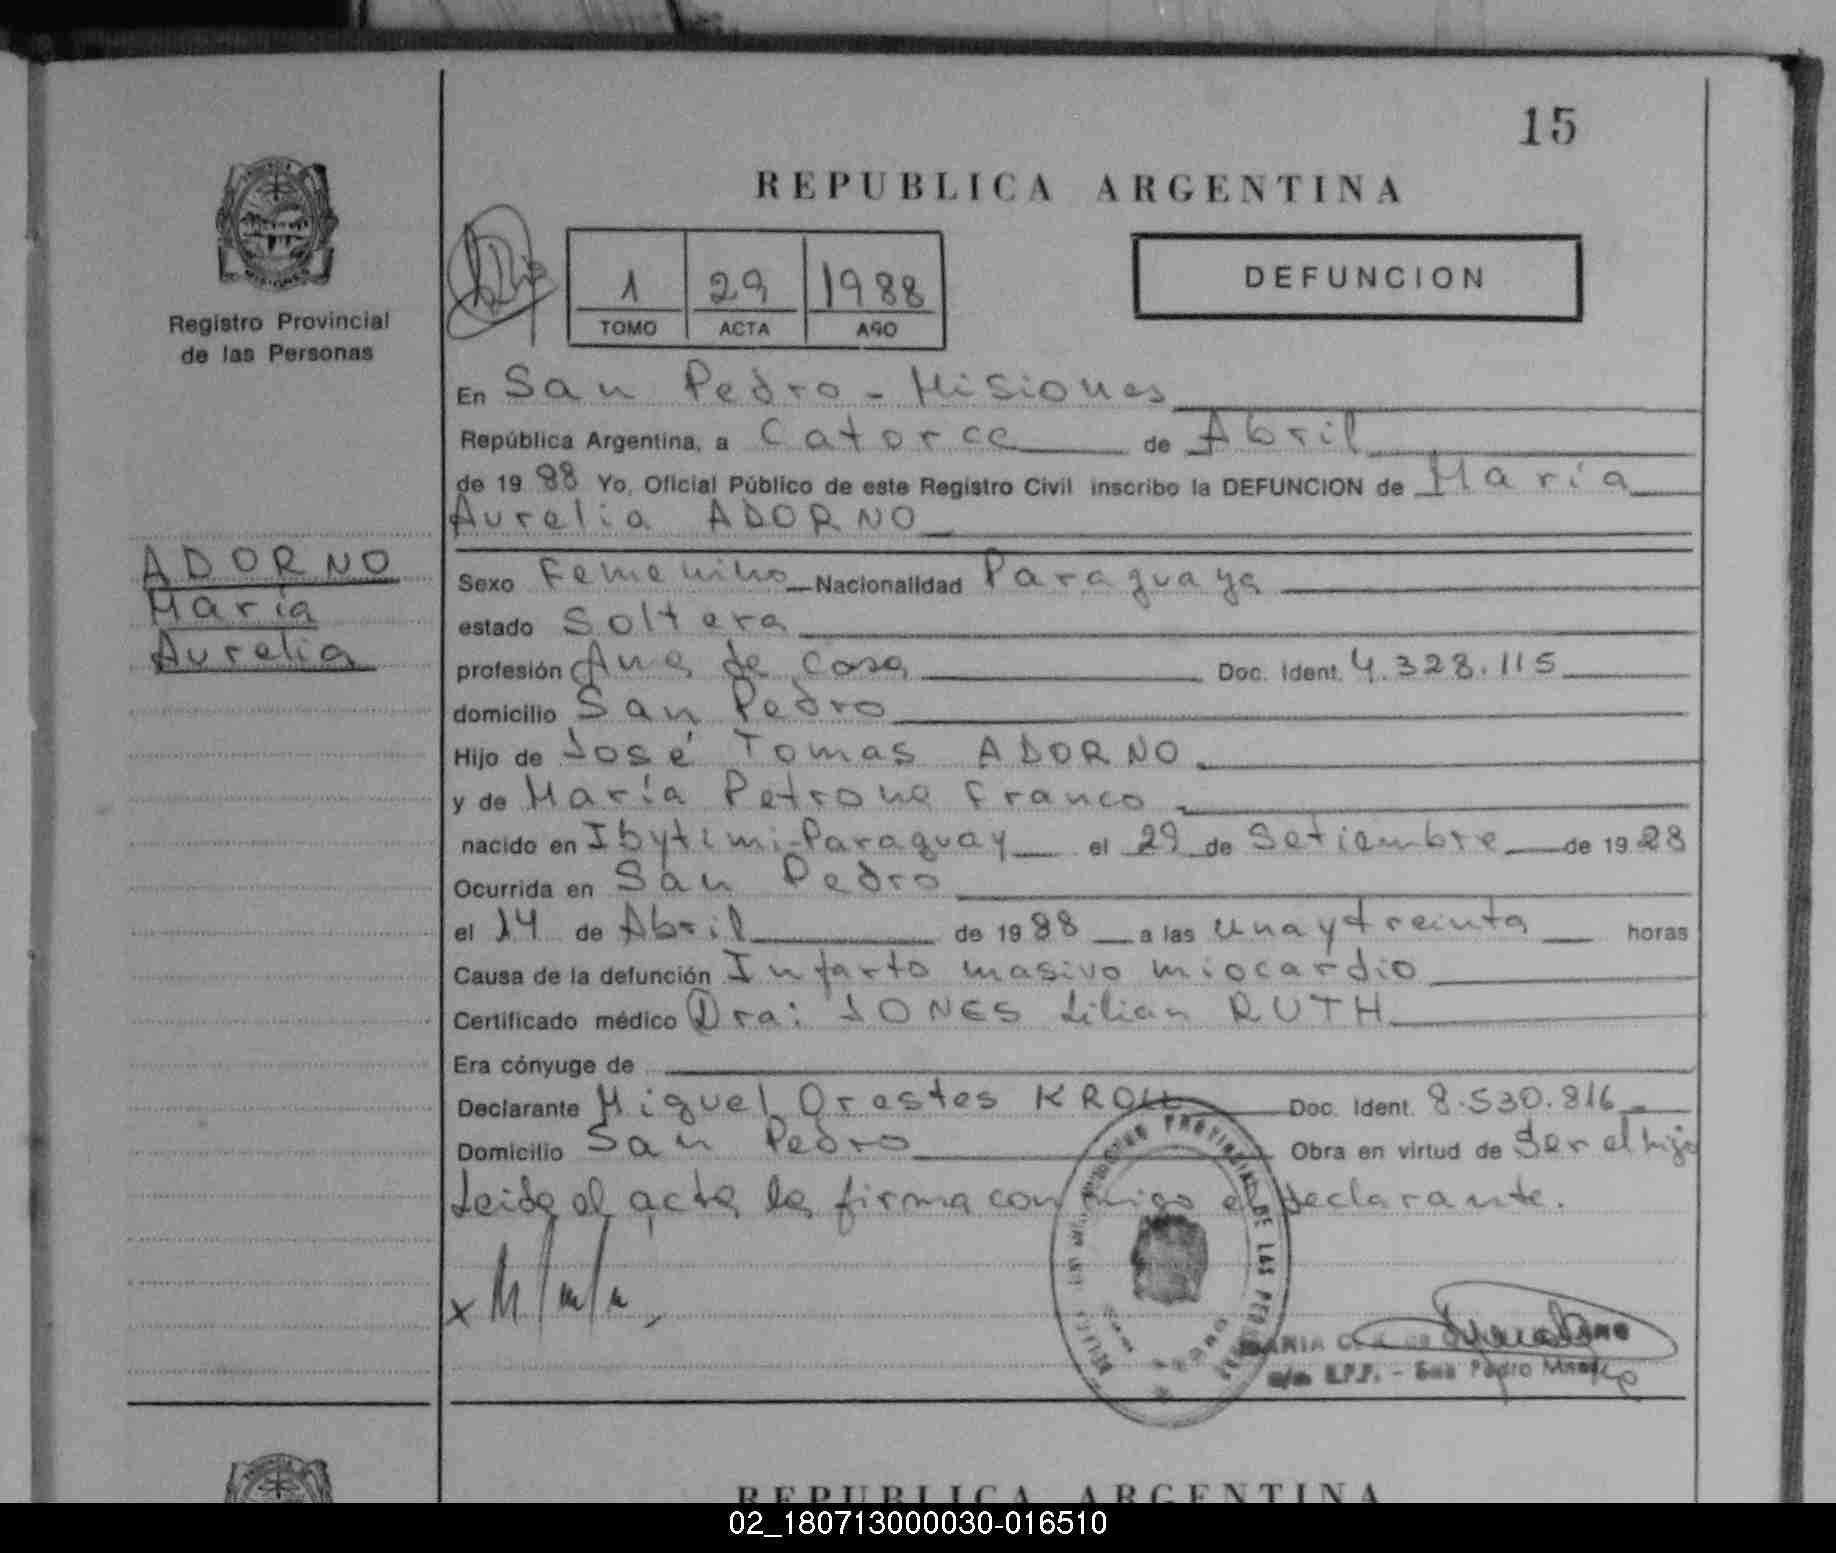 15
REPUBLICA ARGENTINA
Registro Provincial
de las Personas
1 29 1988
TOMO ACTA AÑO
DEFUNCION
En San Pedro - Misiones
República Argentina, a Catorce de Abril
de 1988 Yo, Oficial Público de este Registro Civil inscribo la DEFUNCION de María
Aurelia ADORNO
ADORNO
María
Aurelia
Sexo Femenino Nacionalidad Paraguaya
estado Soltera
profesión Ama de casa Doc. Ident. 4.328.115
domicilio San Pedro
Hijo de José Tomas ADORNO
y de María Petrona Franco
nacido en Ibytimi-Paraguay el 29 de Setiembre de 1928
Ocurrida en San Pedro
el 14 de Abril de 1988 a las una y treinta horas
Causa de la defunción Infarto masivo miocardio
Certificado médico Dra: JONES Lilian RUTH
Era cónyuge de
Declarante Miguel Orestes KROLL Doc. Ident. 8.530.816
Domicilio San Pedro Obra en virtud de Ser el hijo
Leida el acta la firma conmigo el declarante.
x
DE LAS
MARIA
R.P.P. - San Pedro Mnes
REPUBLICA ARGENTINA
02_180713000030-016510